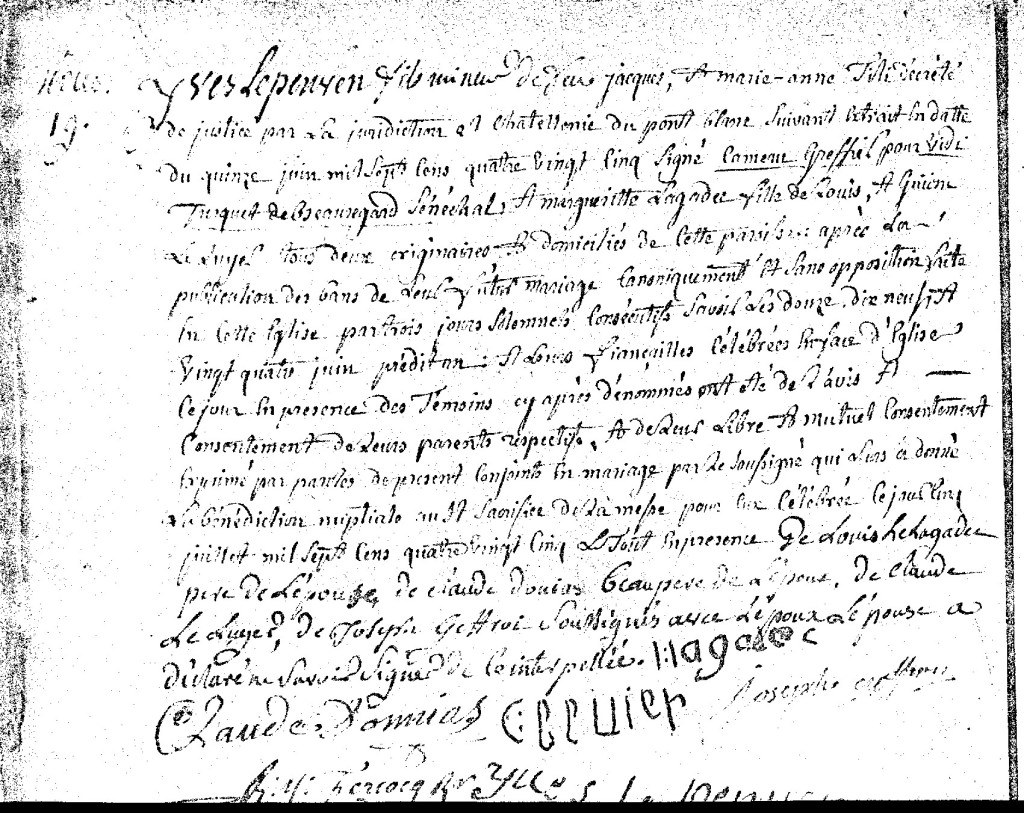 19.
Yves Lepenven fils mineur de feu jacques, Et marie-anne décrété
de justice par La juridiction et Chatellenie du pont blanc Suivant Extrait En datte
du quinze juin mil Sept Cens quatre Vingt Cinq Signé Greffier pour Vidi
Turquet de Beauregard Sénéchal, Et margueritte Lagadec fille de Louis, Et
tous deux originaires Et domiciliés de Cette paroisse après La
publication des bans de Leur futur mariage Canoniquement Et Sans opposition faite
En Cette Eglise par trois jours Solemnels Consécutifs Savoir Les douze, dix neuf, Et
Vingt quatre juin prédit an, Et Leurs fiançailles Célébrées En face d'Eglise
Ce jour En presence des Témoins cy après dénommés ont été de L'avis Et
Consentement de Leurs parents respectifs, Et de Leur Libre Et mutuel Consentement
Exprimé par paroles de present Conjoints En mariage par Le Soussigné qui Leurs à donné
La bénédiction nuptiale au St Sacrifice de La messe pour Eux Célébrée Ce jour Cinq
juillet mil Sept Cens quatre vingt Cinq Le Tout En presence De Louis Le Lagadec
pere de L'épouse, de Claude beaupere de L'époux, de Claude
de Joseph Geffroi Soussignés avec L'époux L'épouse a
déclaré ne Savoir Signer de Ce interpellée. Lagadec
Claude Joseph geffroy
Yves Le Penven